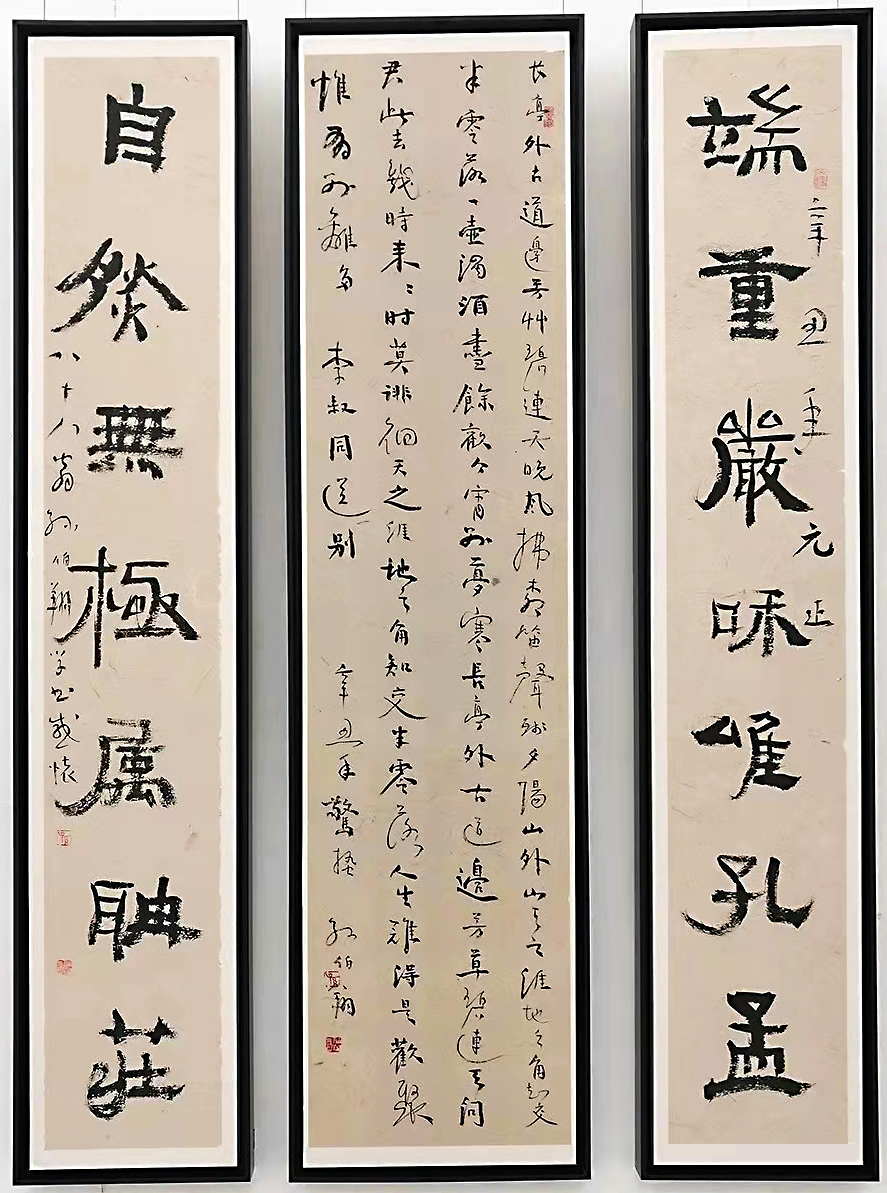 端重嚴咊唯孔孟
辛丑年元正
长亭外古道邊芳艸碧連天晚风拂柳笛聲残夕陽山外山天之涯地之角知交
半零落一壺濁酒盡餘歡今宵别夢寒长亭外古道邊芳草碧連天问
君此去幾時来々时莫徘徊天之涯地之角知交半零落人生難得是歡聚
惟有别離多 李叔同送别 辛丑年驚蟄 孙伯翔
自然無極属聃莊
八十八翁孙伯翔学书感懷